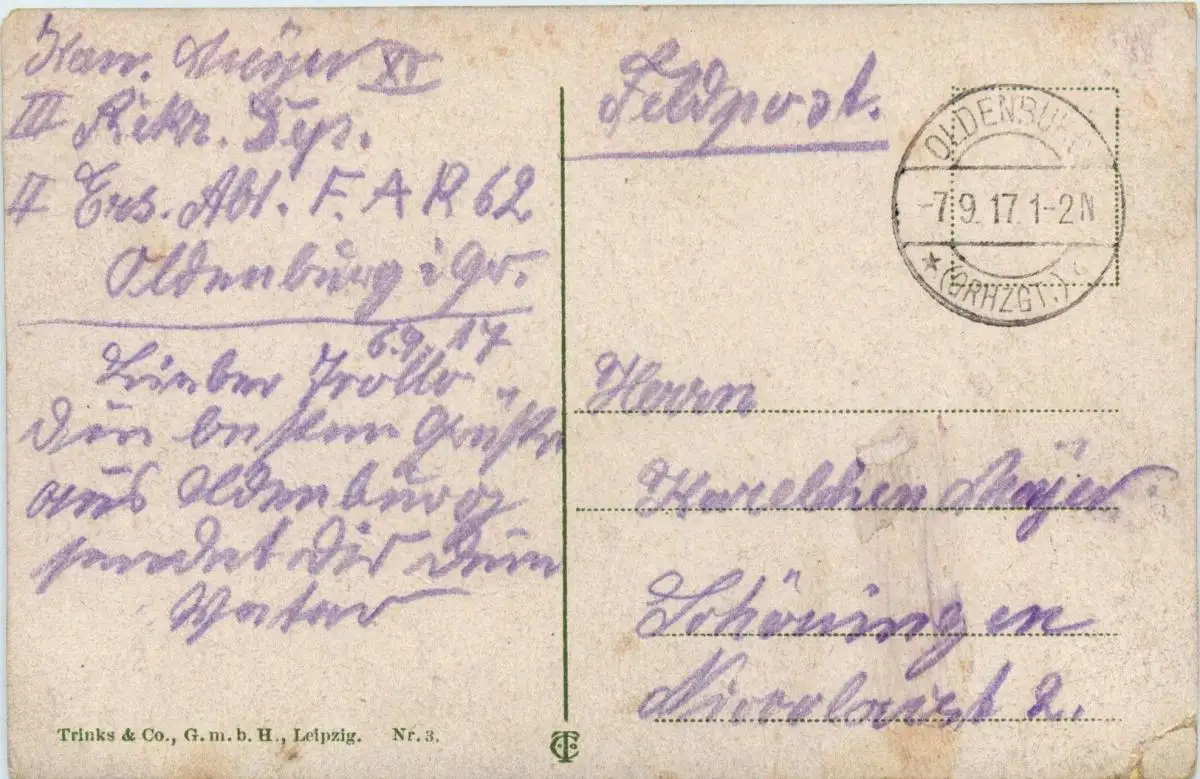 Kan. Meÿer XI
III Rekr. Dep.
II Ers. Abt. F. A R 62
Oldenburg i Gr.
6.9. 17
Lieber Trollo
Die besten Grüße
aus Oldenburg
sendet Dir Dein
Vater
Trinks & Co., G. m. b. H., Leipzig. Nr. 3.
Feldpost.
OLDENBURG
-7.9.17.1-2N
* (GRHZGT.)
Herrn
Karelchen Meÿer
Schöningen
2.